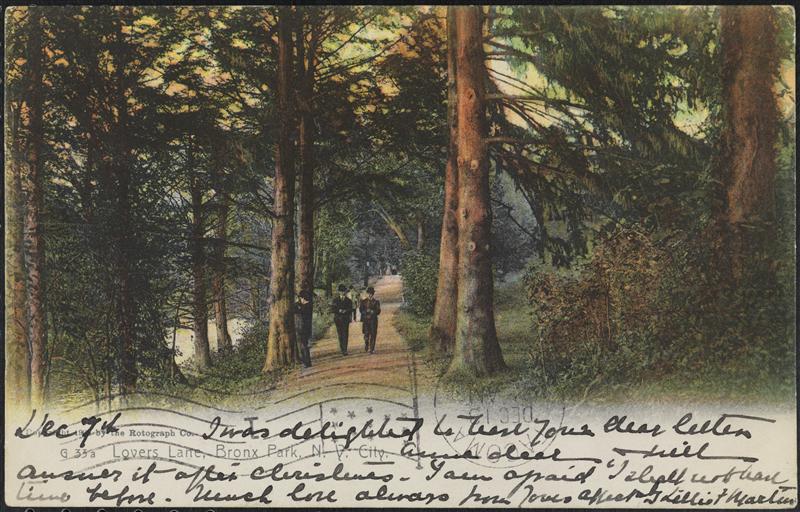 Dec 7th I was delighted to hear your dear letter
by the Rotograph Co.
G 35a Lovers Lane, Bronx Park, N. Y. City.
Anna dear will
answer it after Christmas. I am afraid I shall not have
time before. Much love always from Yours affect
DEC